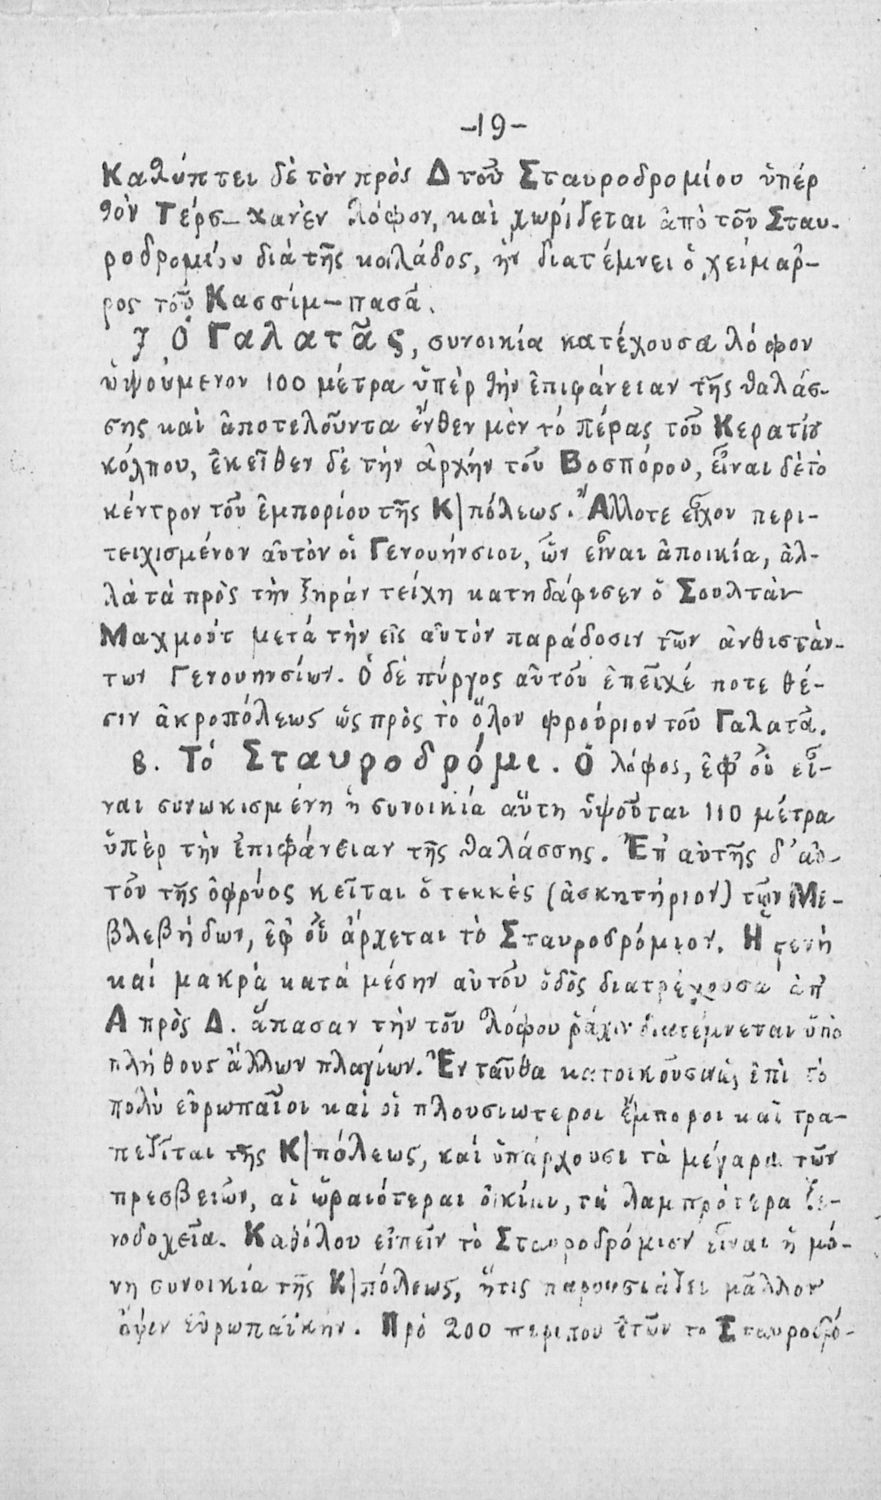 -19-
Καλύπτει δὲ τὸν πρὸς Δ τοῦ Σταυροδρομίου ὑπέρ
τὸν Τέρσ-χανὲν λόφον, καὶ χωρίζεται ἀπὸ τοῦ Σταυ-
ροδρομίου διὰ τῆς κοιλάδος, ἣν διατέμνει ὁ χείμαρ-
ρος τοῦ Κασσίμ-πασᾶ.
7 Ὁ Γαλατᾶς, συνοικία κατέχουσα λόφον
ὑψούμενον 100 μέτρα ὑπὲρ τὴν ἐπιφάνειαν τῆς θαλάσ-
σης καὶ ἀποτελοῦντα ἔνθεν μὲν τὸ πέρας τοῦ Κερατίου
κόλπου, ἐκεῖθεν δὲ τὴν ἀρχήν τοῦ Βοσπόρου, εἶναι δὲ τὸ
κέντρον τοῦ ἐμπορίου τῆς Κ|πόλεως. Ἄλλοτε εἶχον περι-
τειχισμένον αὐτὸν οἱ Γενουήνσιοι, ὧν εἶναι ἀποικία, ἀλ-
λὰ τὰ πρὸς τὴν ξηρὰν τείχη κατηδάφισεν ὁ Σουλτὰν
Μαχμοὺτ μετά τὴν εἰς αὐτὸν παράδοσιν τῶν ἀνθιστάν-
των Γενουηνσίων. Ὁ δὲ πύργος αὐτοῦ ἐπεῖχέ ποτε θέ-
σιν ἀκροπόλεως ὡς πρὸς τὸ ὅλον φρούριον τοῦ Γαλατᾶ.
8. Τό Σταυροδρόμι. Ὁ λόφος, ἐφ' οὗ εἶ-
ναι συνωκισμένη ἡ συνοικία αὕτη ὑψοῦται 110 μέτρα
ὑπὲρ τὴν ἐπιφάνειαν τῆς θαλάσσης. Ἐπ' αὐτῆς δ' αὐ-
τοῦ τῆς ὀφρύος κεῖται ὁ τεκκὲς (ἀσκητήριον) τῶν Με-
βλεβήδων, ἐφ' οὗ ἄρχεται τὸ Σταυροδρόμιον. Ἡ στενὴ
καί μακρὰ κατὰ μέσην αὐτοῦ ὁδὸς διατρέχουσα ἀπ'
Α πρὸς Δ. ἅπασαν τὴν τοῦ λόφου ῥάχιν διατέμνεται ὑπὸ
πλήθους ἄλλων πλαγίων. Ἐνταῦθα κατοικοῦσιν ὡς ἐπὶ τὸ
πολὺ εὐρωπαῖοι καὶ οἱ πλουσιωτεροι ἔμποροι καὶ τρα-
πεζῖται τῆς Κ|πόλεως, καί ὑπάρχουσι τὰ μέγαρα τῶν
πρεσβειῶν, αἱ ὡραιότεραι οἰκίαι, τὰ λαμπρότερα ξε-
νοδοχεῖα. Καθόλου εἰπεῖν τὸ Σταυροδρόμιον εἶναι ἡ μό-
νη συνοικία τῆς Κ|πόλεως, ἥτις παρουσιάζει μᾶλλον
ὄψιν εὐρωπαϊκήν. Πρό 200 περιπου ἐτῶν το Σταυροδρό-